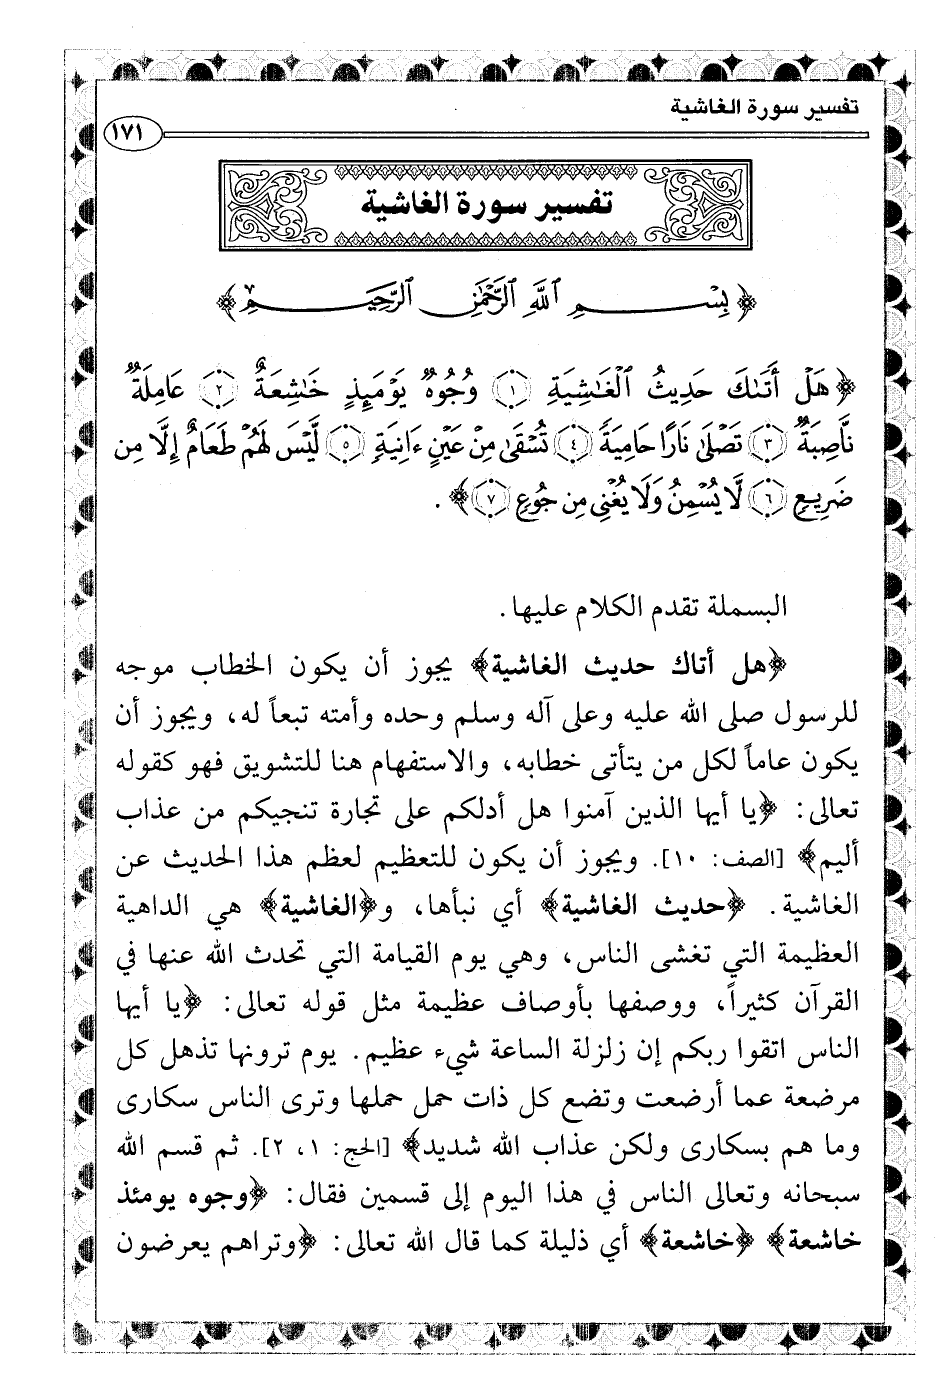 تفسير سورة الغاشية
١٧١
تفسير سورة الغاشية
﴿بِسْمِ اللَّهِ الرَّحْمَٰنِ الرَّحِيمِ﴾
﴿هَلْ أَتَىٰكَ حَدِيثُ الْغَـٰشِيَةِ ﴿١﴾ وُجُوهٌ يَوْمَئِذٍ خَـٰشِعَةٌ ﴿٢﴾ عَامِلَةٌ
نَّاصِبَةٌ ﴿٣﴾ تَصْلَىٰ نَارًا حَامِيَةً ﴿٤﴾ تُسْقَىٰ مِنْ عَيْنٍ ءَانِيَةٍ ﴿٥﴾ لَّيْسَ لَهُمْ طَعَامٌ إِلَّا مِن
ضَرِيعٍ ﴿٦﴾ لَّا يُسْمِنُ وَلَا يُغْنِى مِن جُوعٍ ﴿٧﴾﴾ .
البسملة تقدم الكلام عليها.
﴿هل أتاك حديث الغاشية﴾ يجوز أن يكون الخطاب موجه
للرسول صلى الله عليه وعلى آله وسلم وحده وأمته تبعاً له، ويجوز أن
يكون عاماً لكل من يتأتى خطابه، والاستفهام هنا للتشويق فهو كقوله
تعالى: ﴿يا أيها الذين آمنوا هل أدلكم على تجارة تنجيكم من عذاب
أليم﴾ [الصف: ١٠]. ويجوز أن يكون للتعظيم لعظم هذا الحديث عن
الغاشية. ﴿حديث الغاشية﴾ أي نبأها، و﴿الغاشية﴾ هي الداهية
العظيمة التي تغشى الناس، وهي يوم القيامة التي تحدث الله عنها في
القرآن كثيراً، ووصفها بأوصاف عظيمة مثل قوله تعالى: ﴿يا أيها
الناس اتقوا ربكم إن زلزلة الساعة شيء عظيم. يوم ترونها تذهل كل
مرضعة عما أرضعت وتضع كل ذات حمل حملها وترى الناس سكارى
وما هم بسكارى ولكن عذاب الله شديد﴾ [الحج: ١، ٢]. ثم قسم الله
سبحانه وتعالى الناس في هذا اليوم إلى قسمين فقال: ﴿وجوه يومئذ
خاشعة﴾ ﴿خاشعة﴾ أي ذليلة كما قال الله تعالى: ﴿وتراهم يعرضون